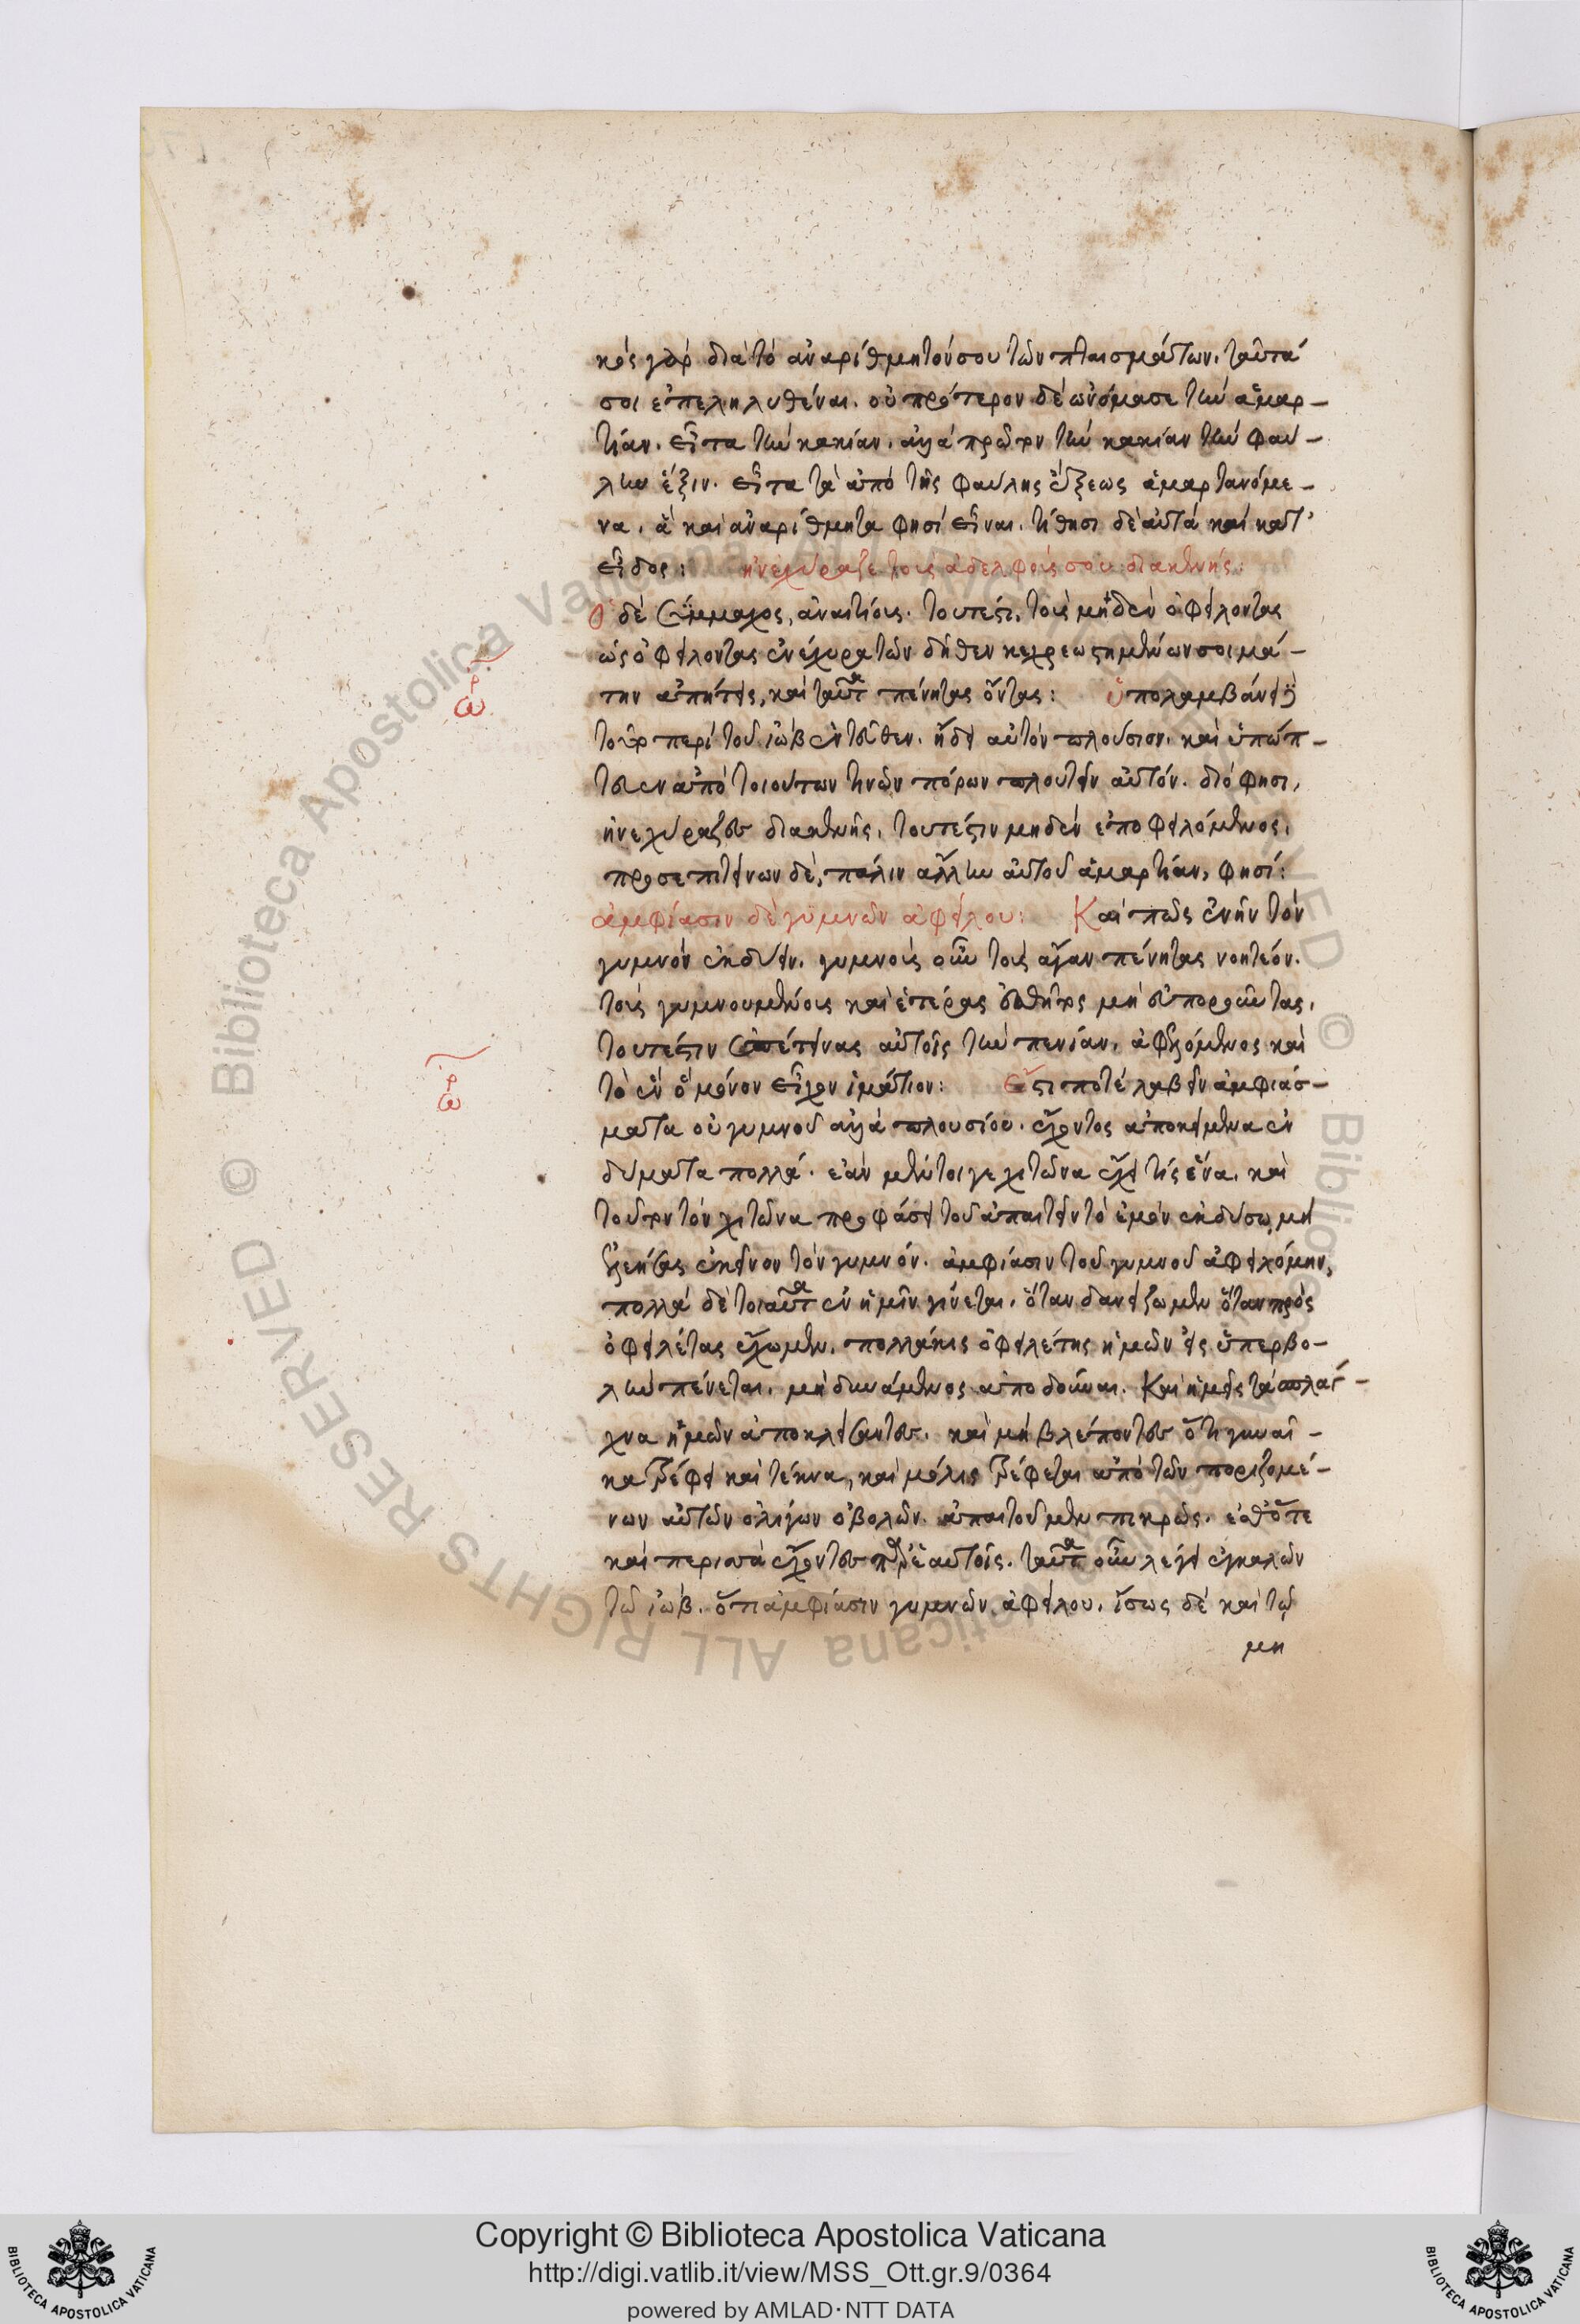 κὸς γὰρ διὰ τὸ ἀναρίθμητόν σου τῶν πταισμάτων, ταῦτά
σοι ἐπεληλυθέναι. οὐ πρότερον δὲ ὠνόμασε τὴν ἁμαρ-
τίαν. εἶτα τὴν κακίαν. ἀλλὰ πρῶτον τὴν κακίαν τὴν φαύ-
λην ἕξιν. εἶτα τὰ ἀπὸ τῆς φαύλης ἕξεως ἁμαρτανόμε-
να. ἃ καὶ ἀναρίθμητα φησὶ εἶναι. τίθησι δὲ αὐτὰ καὶ κατ'
εἶδος: ἠνεχύραζε τοὺς ἀδελφούς σου διακενῆς:
Ὁ δὲ Σύμμαχος, ἀναιτίους. τουτέστι, τοὺς μηδὲν ὀφείλοντας
ὡς ὀφείλοντας ἐνέχυρα τῶν δῆθεν κεχρεωστημένων σοι μά-
την ἀπῄτεις, καὶ ταῦτα πένητας ὄντας: ὑπολαμβάνει
περὶ τοῦ ἰὼβ ἐντεῦθεν. ᾔδει αὐτὸν πλούσιον. καὶ ὑπώπ-
τευεν ἀπὸ τοιούτων τινῶν πόρων πλουτεῖν αὐτόν. διό φησι,
ἠνεχύραζες διακενῆς, τουτέστιν μηδὲν ἐποφειλόμενος.
προσεπιτείνων δὲ, πάλιν ἄλλην αὐτοῦ ἁμαρτίαν, φησί:
ἀμφίασιν δὲ γυμνῶν ἀφείλου: Καὶ πῶς ἐνῆν τὸν
γυμνὸν ἐκδύειν. γυμνοὺς οὖν τοὺς ἄγαν πένητας νοητέον.
τοὺς γυμνουμένους καὶ ἑτέρας ἐσθῆτος μὴ εὐποροῦντας,
τουτέστιν ἐπέτεινας αὐτοῖς τὴν πενίαν, ἀφελόμενος καὶ
τὸ ἓν ὃ μόνον εἶχον ἱμάτιον: Ἔστι ποτὲ λαβεῖν ἀμφιάσ-
ματα οὐ γυμνοῦ ἀλλὰ πλουσίου. ἔχοντος ἀποκείμενα ἐν
δύματα πολλά. ἐὰν μέντοι γε χιτῶνα ἔχει τίς ἕνα. καὶ
τοῦτον τὸν χιτῶνα προφάσει τοῦ ἀπαιτεῖν τὸ ἐμὸν ἐκδύσω, μὴ
ἐλεήσας ἐκεῖνον τὸν γυμνόν. ἀμφίασιν τοῦ γυμνοῦ ἀφειλόμην,
πολλὰ δὲ τοιαῦτα ἐν ἡμῖν γίνεται. ὅταν δανείζωμεν ὅταν πρὸς
ὀφειλέτας ἔχωμεν. πολλάκις ὀφειλέτης ἡμῶν εἰς ὑπερβο-
λὴν πένεται. μὴ δυνάμενος ἀποδοῦναι. Καὶ ἡμεῖς τὰ σπλάγ-
χνα ἡμῶν ἀποκλείσαντες. καὶ μὴ βλέποντες ὅτι γυναῖ-
κα τρέφει καὶ τέκνα, καὶ μόλις τρέφεται ἀπὸ τῶν ποριζομέ-
νων αὐτῶν ὀλίγων ὀβολῶν. ἀπαιτοῦμεν πικρῶς. ἐσθότε
καὶ περισσὰ ἔχοντες παρ' ἑαυτοῖς. ταῦτα οὖν λέγει ἐγκαλῶν
τῷ ἰώβ. ὅτι ἀμφίασιν γυμνῶν ἀφείλου. ἴσως δὲ καὶ τῷ
μη
Copyright © Biblioteca Apostolica Vaticana
http://digi.vatlib.it/view/MSS_Ott.gr.9/0364
powered by AMLAD · NTT DATA